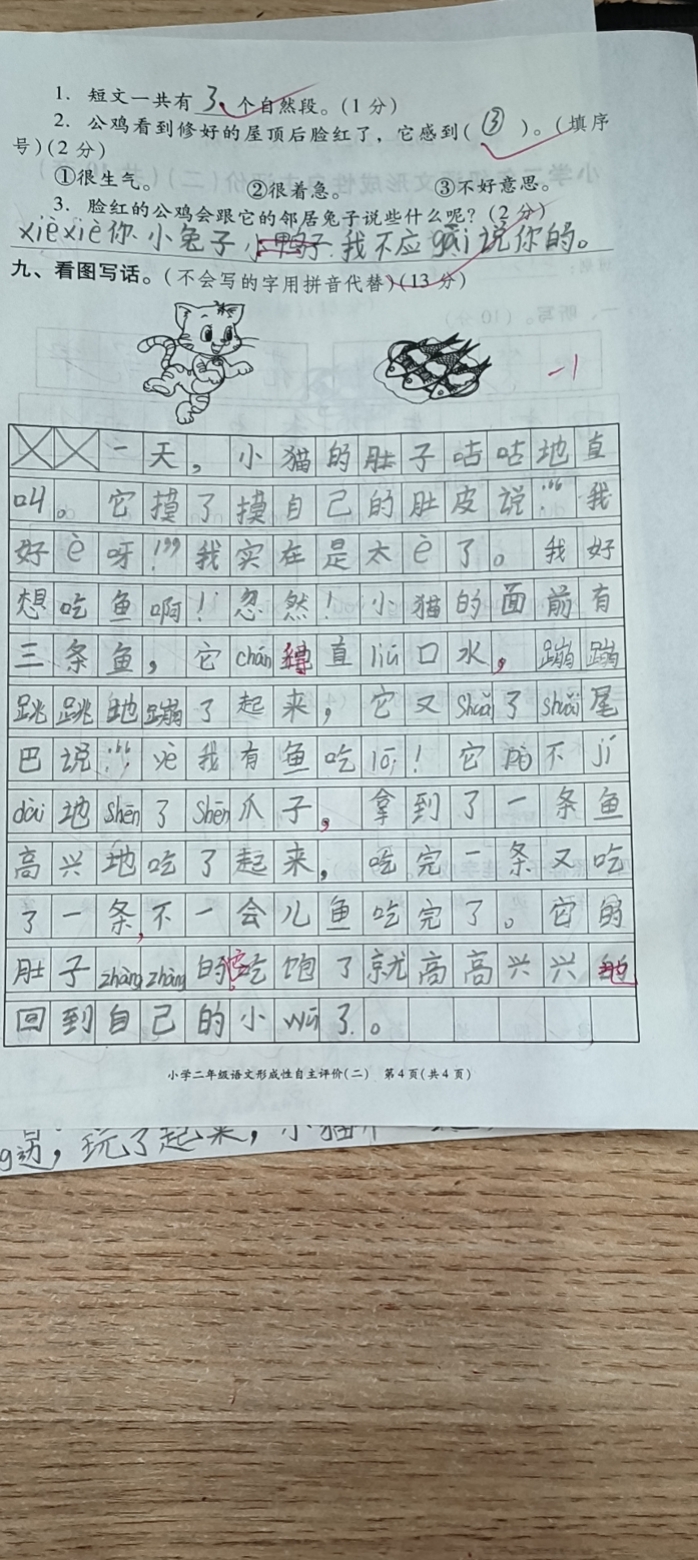 1. 短文一共有 3 个自然段。(1 分)
2. 公鸡看到修好的屋顶后脸红了，它感到( ③ )。(填序
号)(2 分)
①很生气。 ②很着急。 ③不好意思。
3. 脸红的公鸡会跟它的邻居兔子说些什么呢？(2 分)
xièxiè你 小兔子 我不应gāi说你的。
九、看图写话。(不会写的字用拼音代替)(13 分)
-1
一天，小猫的肚子咕咕地直
叫。它摸了摸自己的肚皮说：“我
好è呀！”我实在是太è了。我好
想吃鱼啊！忽然！小猫的面前有
三条鱼，它chán得直liú口水，蹦蹦
跳跳地蹦了起来，它又shuǎi了shuǎi尾
巴说：“yè我有鱼吃lō！它pò不jí
dài地shēn了shēn爪子，拿到了一条鱼
高兴地吃了起来，吃完一条又吃
了一条，不一会儿鱼吃完了。它的
肚子zhàngzhàng的它吃饱了就高高兴兴地
回到自己的小wū了。
小学二年级语文形成性自主评价(二) 第4页(共4页)
，玩了起来，小猫